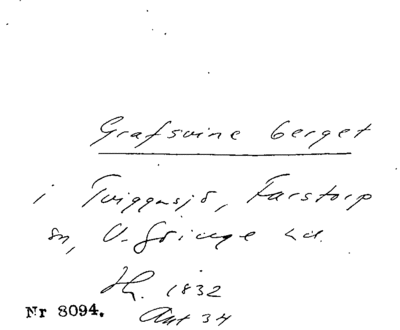 Grafsvine berget
i Tviggasjö, Farstorp
sn, V. Göinge hd.
1832
Nr 8094.
Ant 34